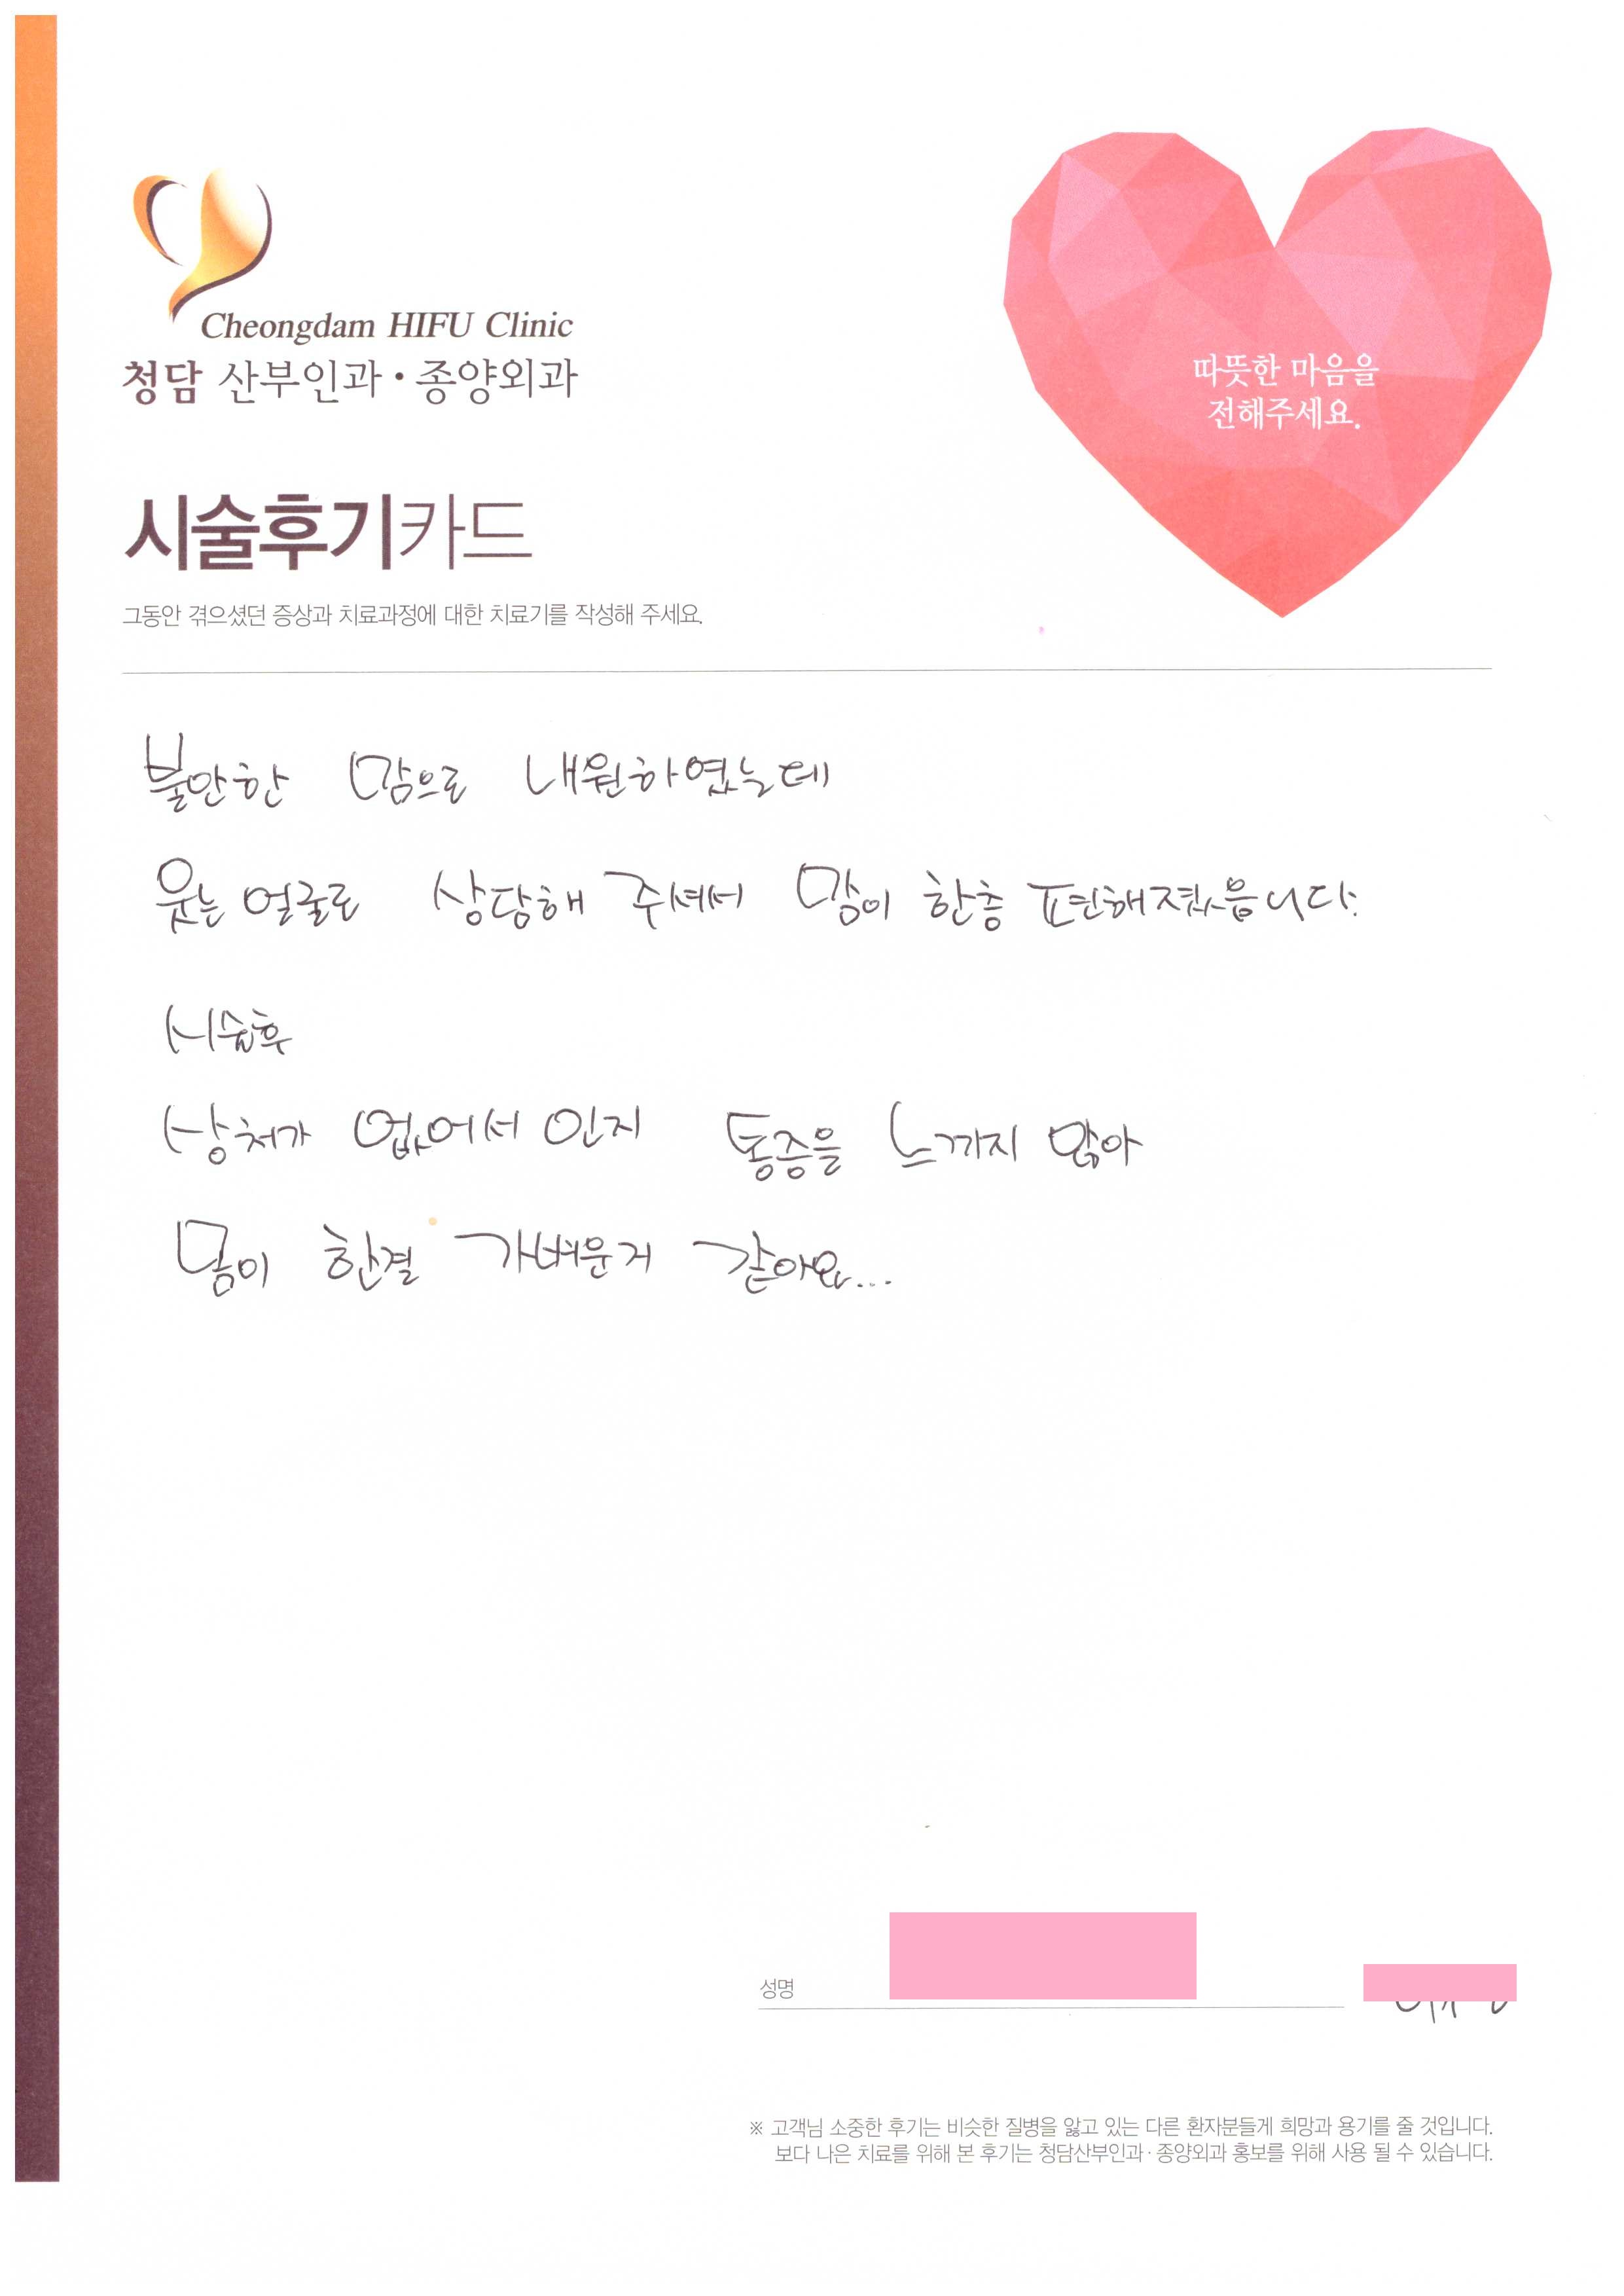 Cheongdam HIFU Clinic
청담 산부인과·종양외과
따뜻한 마음을
전해주세요.
시술후기카드
그동안 겪으셨던 증상과 치료과정에 대한 치료기를 작성해 주세요.
불안한 맘으로 내원하였는데
웃는 얼굴로 상담해 주셔서 맘이 한층 편해졌읍니다.
시술후
상처가 없어서 인지 통증을 느끼지 않아
몸이 한결 가벼운거 같아요...
성명
※ 고객님 소중한 후기는 비슷한 질병을 앓고 있는 다른 환자분들게 희망과 용기를 줄 것입니다.
보다 나은 치료를 위해 본 후기는 청담산부인과·종양외과 홍보를 위해 사용 될 수 있습니다.